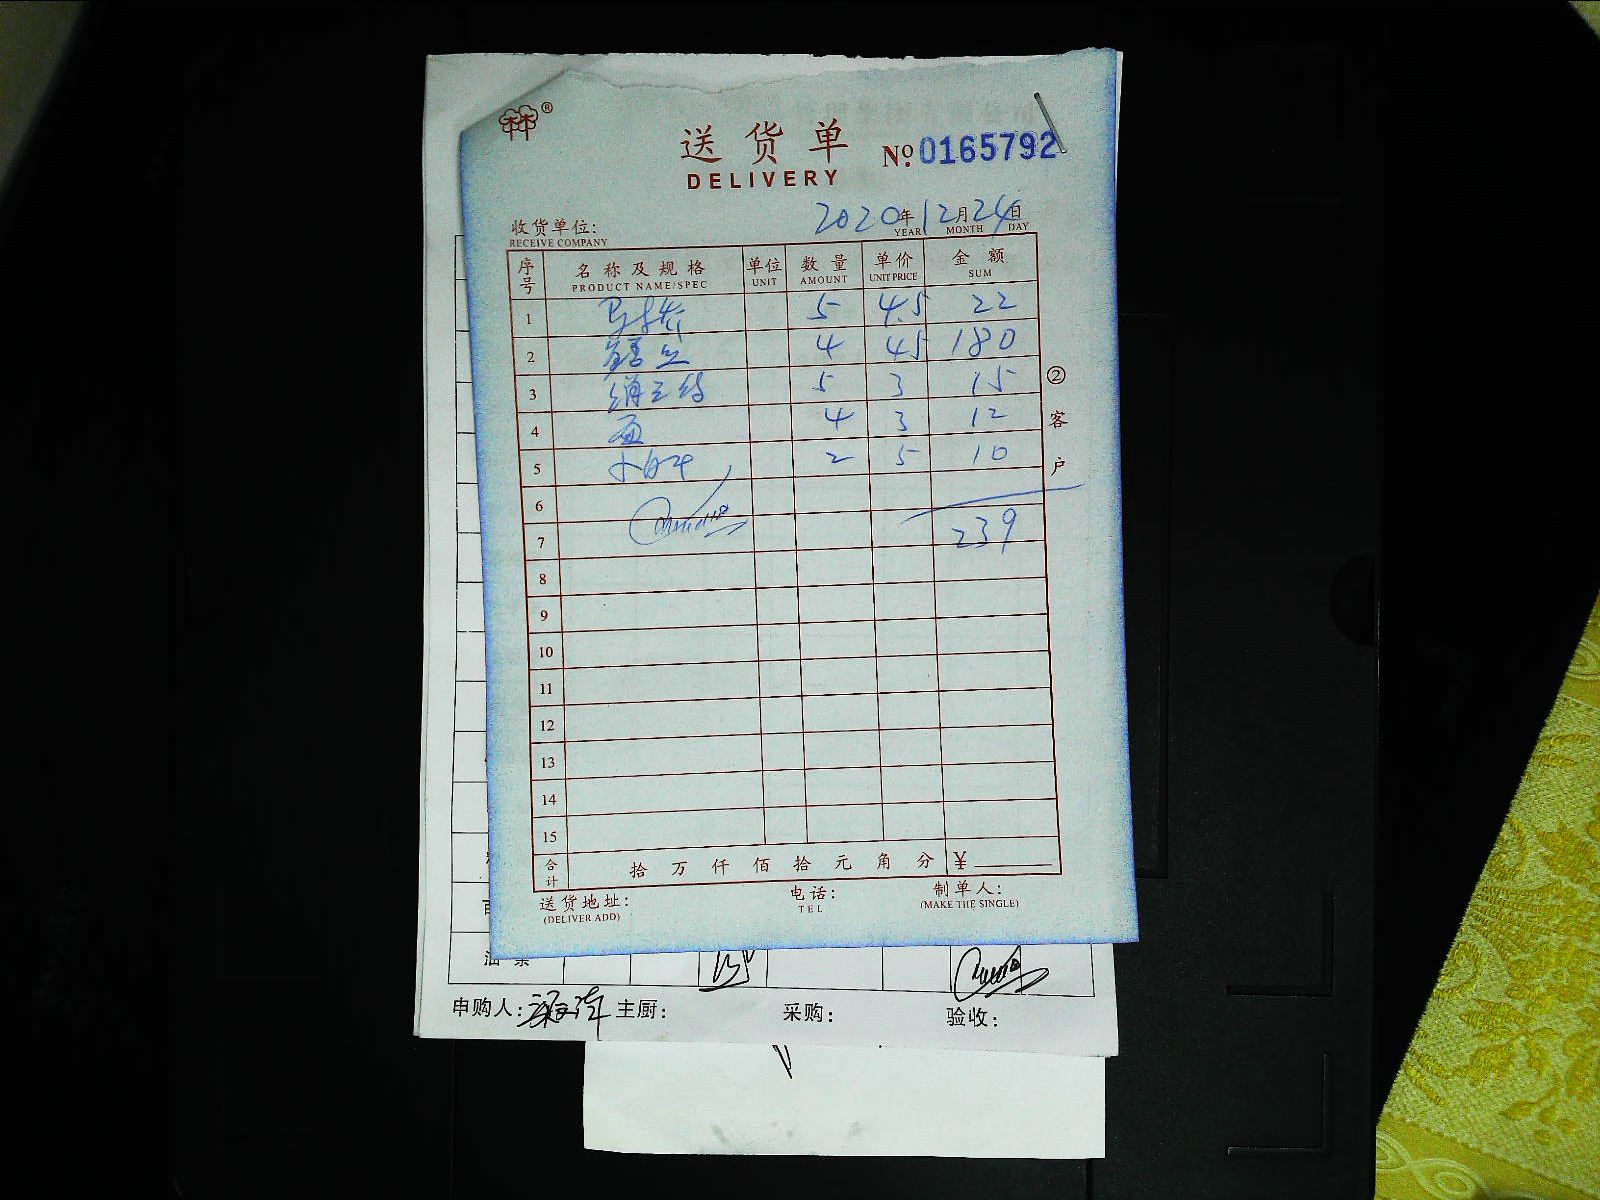 林 ®
送货单
DELIVERY
№ 0165792
2020年12月24日
YEAR MONTH DAY
收货单位:
RECEIVE COMPANY
序号 名称及规格 单位 数量 单价 金额
PRODUCT NAME/SPEC UNIT AMOUNT UNIT PRICE SUM
1 5 4.5 22
2 4 45 180
3 5 3 15
4 4 3 12
5 2 5 10
6
7 239
8
9
10
11
12
13
14
15
合计 拾 万 仟 佰 拾 元 角 分 ¥
②客户
送货地址: 电话: 制单人:
(DELIVER ADD) TEL (MAKE THE SINGLE)
申购人: 主厨: 采购: 验收: